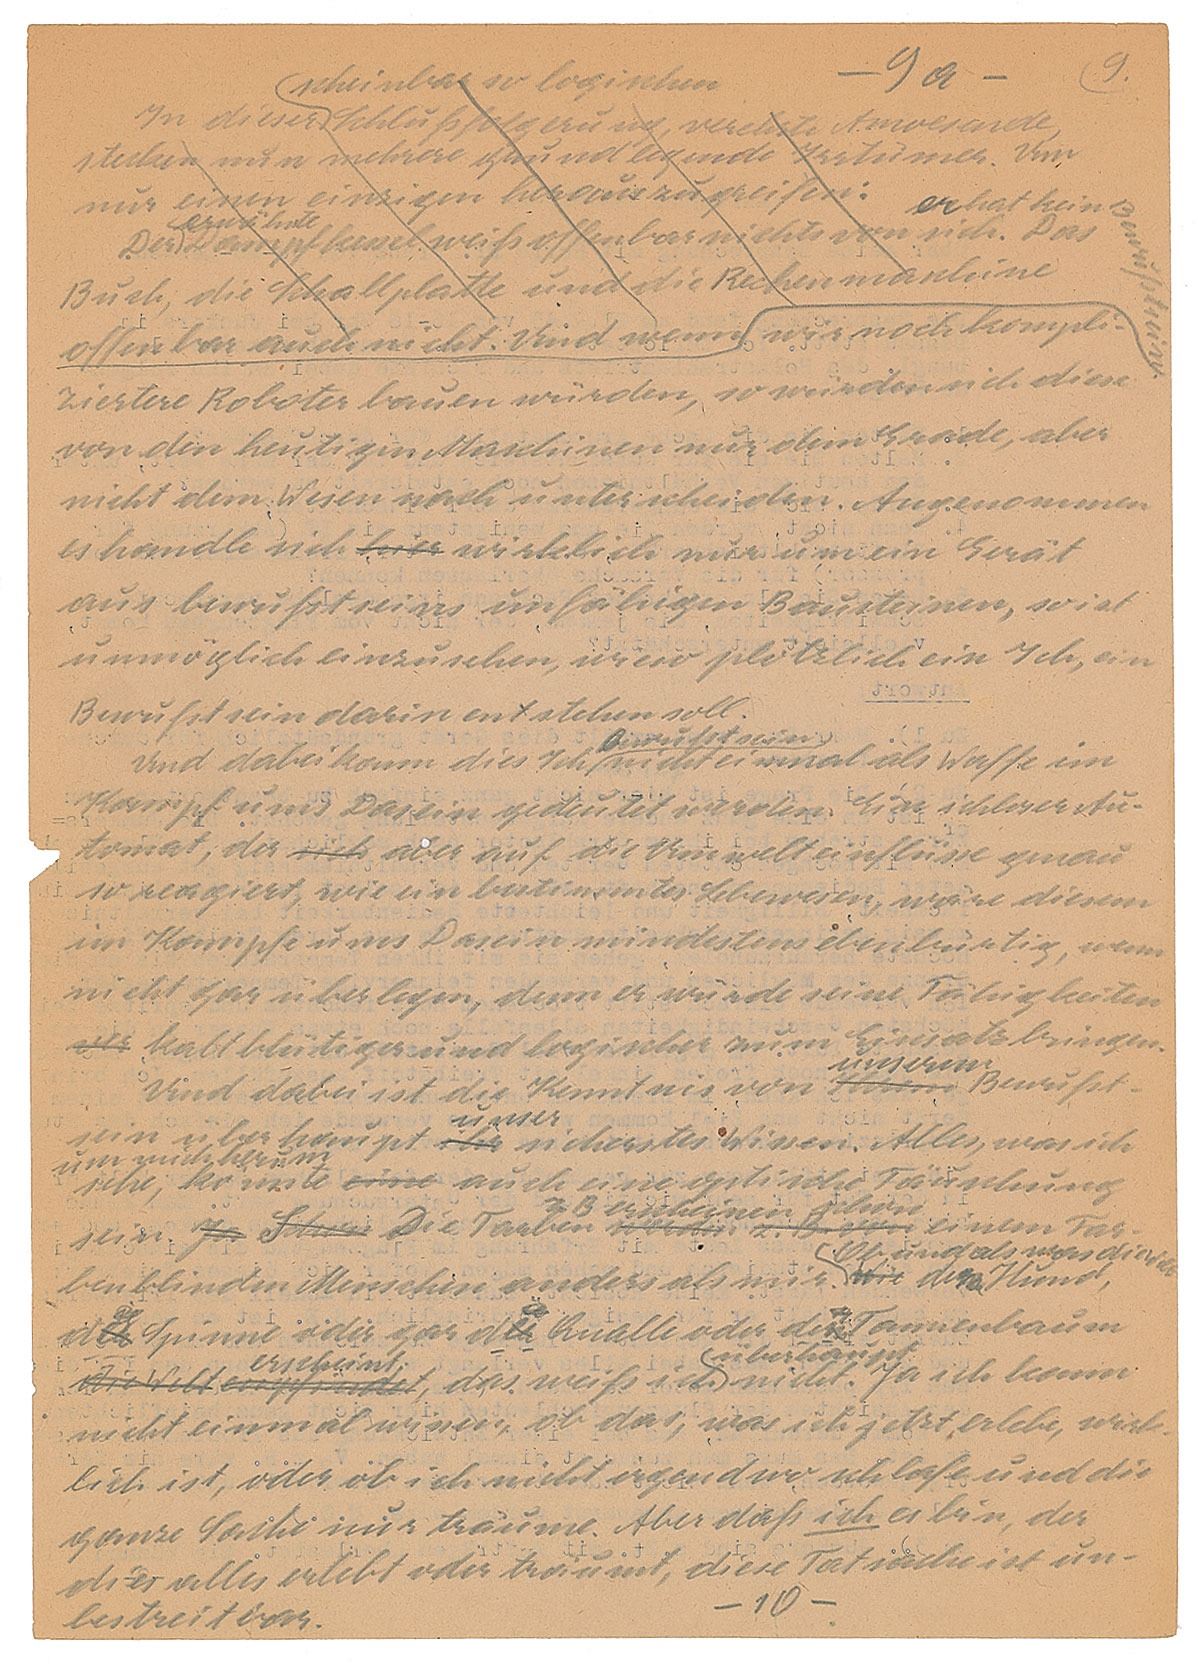 — 9a — 9.
scheinbar so logischen
In dieser Schlußfolgerung, verehrte Anwesende,
stecken nun mehrere grundlegende Irrtümer. Um
nur einen einzigen herauszugreifen:
er hat kein Bewußtsein.
erwähnte
Der Dampfkessel weiß offenbar nichts von sich. Das
Buch, die Schallplatte und die Rechenmaschine
offenbar auch nicht. Und wenn wir noch kompli-
ziertere Roboter bauen würden, so würden sich diese
von den heutigen Maschinen nur dem Grade, aber
nicht dem Wesen nach unterscheiden. Angenommen
es handle sich hier wirklich nur um ein Gerät
aus bewußtseinsunfähigen Bausteinen, so ist
unmöglich einzusehen, wieso plötzlich ein Ich, ein
Bewußtsein darin entstehen soll.
Bewußtsein
Und dabei kann dies Ich nicht einmal als Waffe im
Kampf ums Dasein gedeutet werden. Ein ichloser Au-
tomat, der sich aber auf die Umwelteinflüsse genau
so reagiert, wie ein bestimmtes Lebewesen, wäre diesem
im Kampfe ums Dasein mindestens ebenbürtig, wenn
nicht gar überlegen, denn er würde seine Fähigkeiten
kaltblütiger und logischer zum Einsatz bringen.
unserem
Und dabei ist die Kenntnis von Bewußt-
unser
sein überhaupt sicherstes Wissen. Alles, was ich
um mich herum
sehe, könnte eine auch eine optische Täuschung
z B erscheinen schon
sein. Ja Schon Die Farben werden z. B. von einem Far-
Ob und als was die Welt
benblinden Menschen anders als mir. Wie dem Hund,
der Spinne oder gar der Qualle oder dem Tannenbaum
erscheint überhaupt
die Welt empfindet, das weiß ich nicht. Ja ich kann
nicht einmal wissen, ob das, was ich jetzt erlebe, wirk-
lich ist, oder ob ich nicht irgendwo schlafe und die
ganze Sache nur träume. Aber daß ich es bin, der
dies alles erlebt oder träumt, diese Tatsache ist un-
bestreitbar.
— 10 —